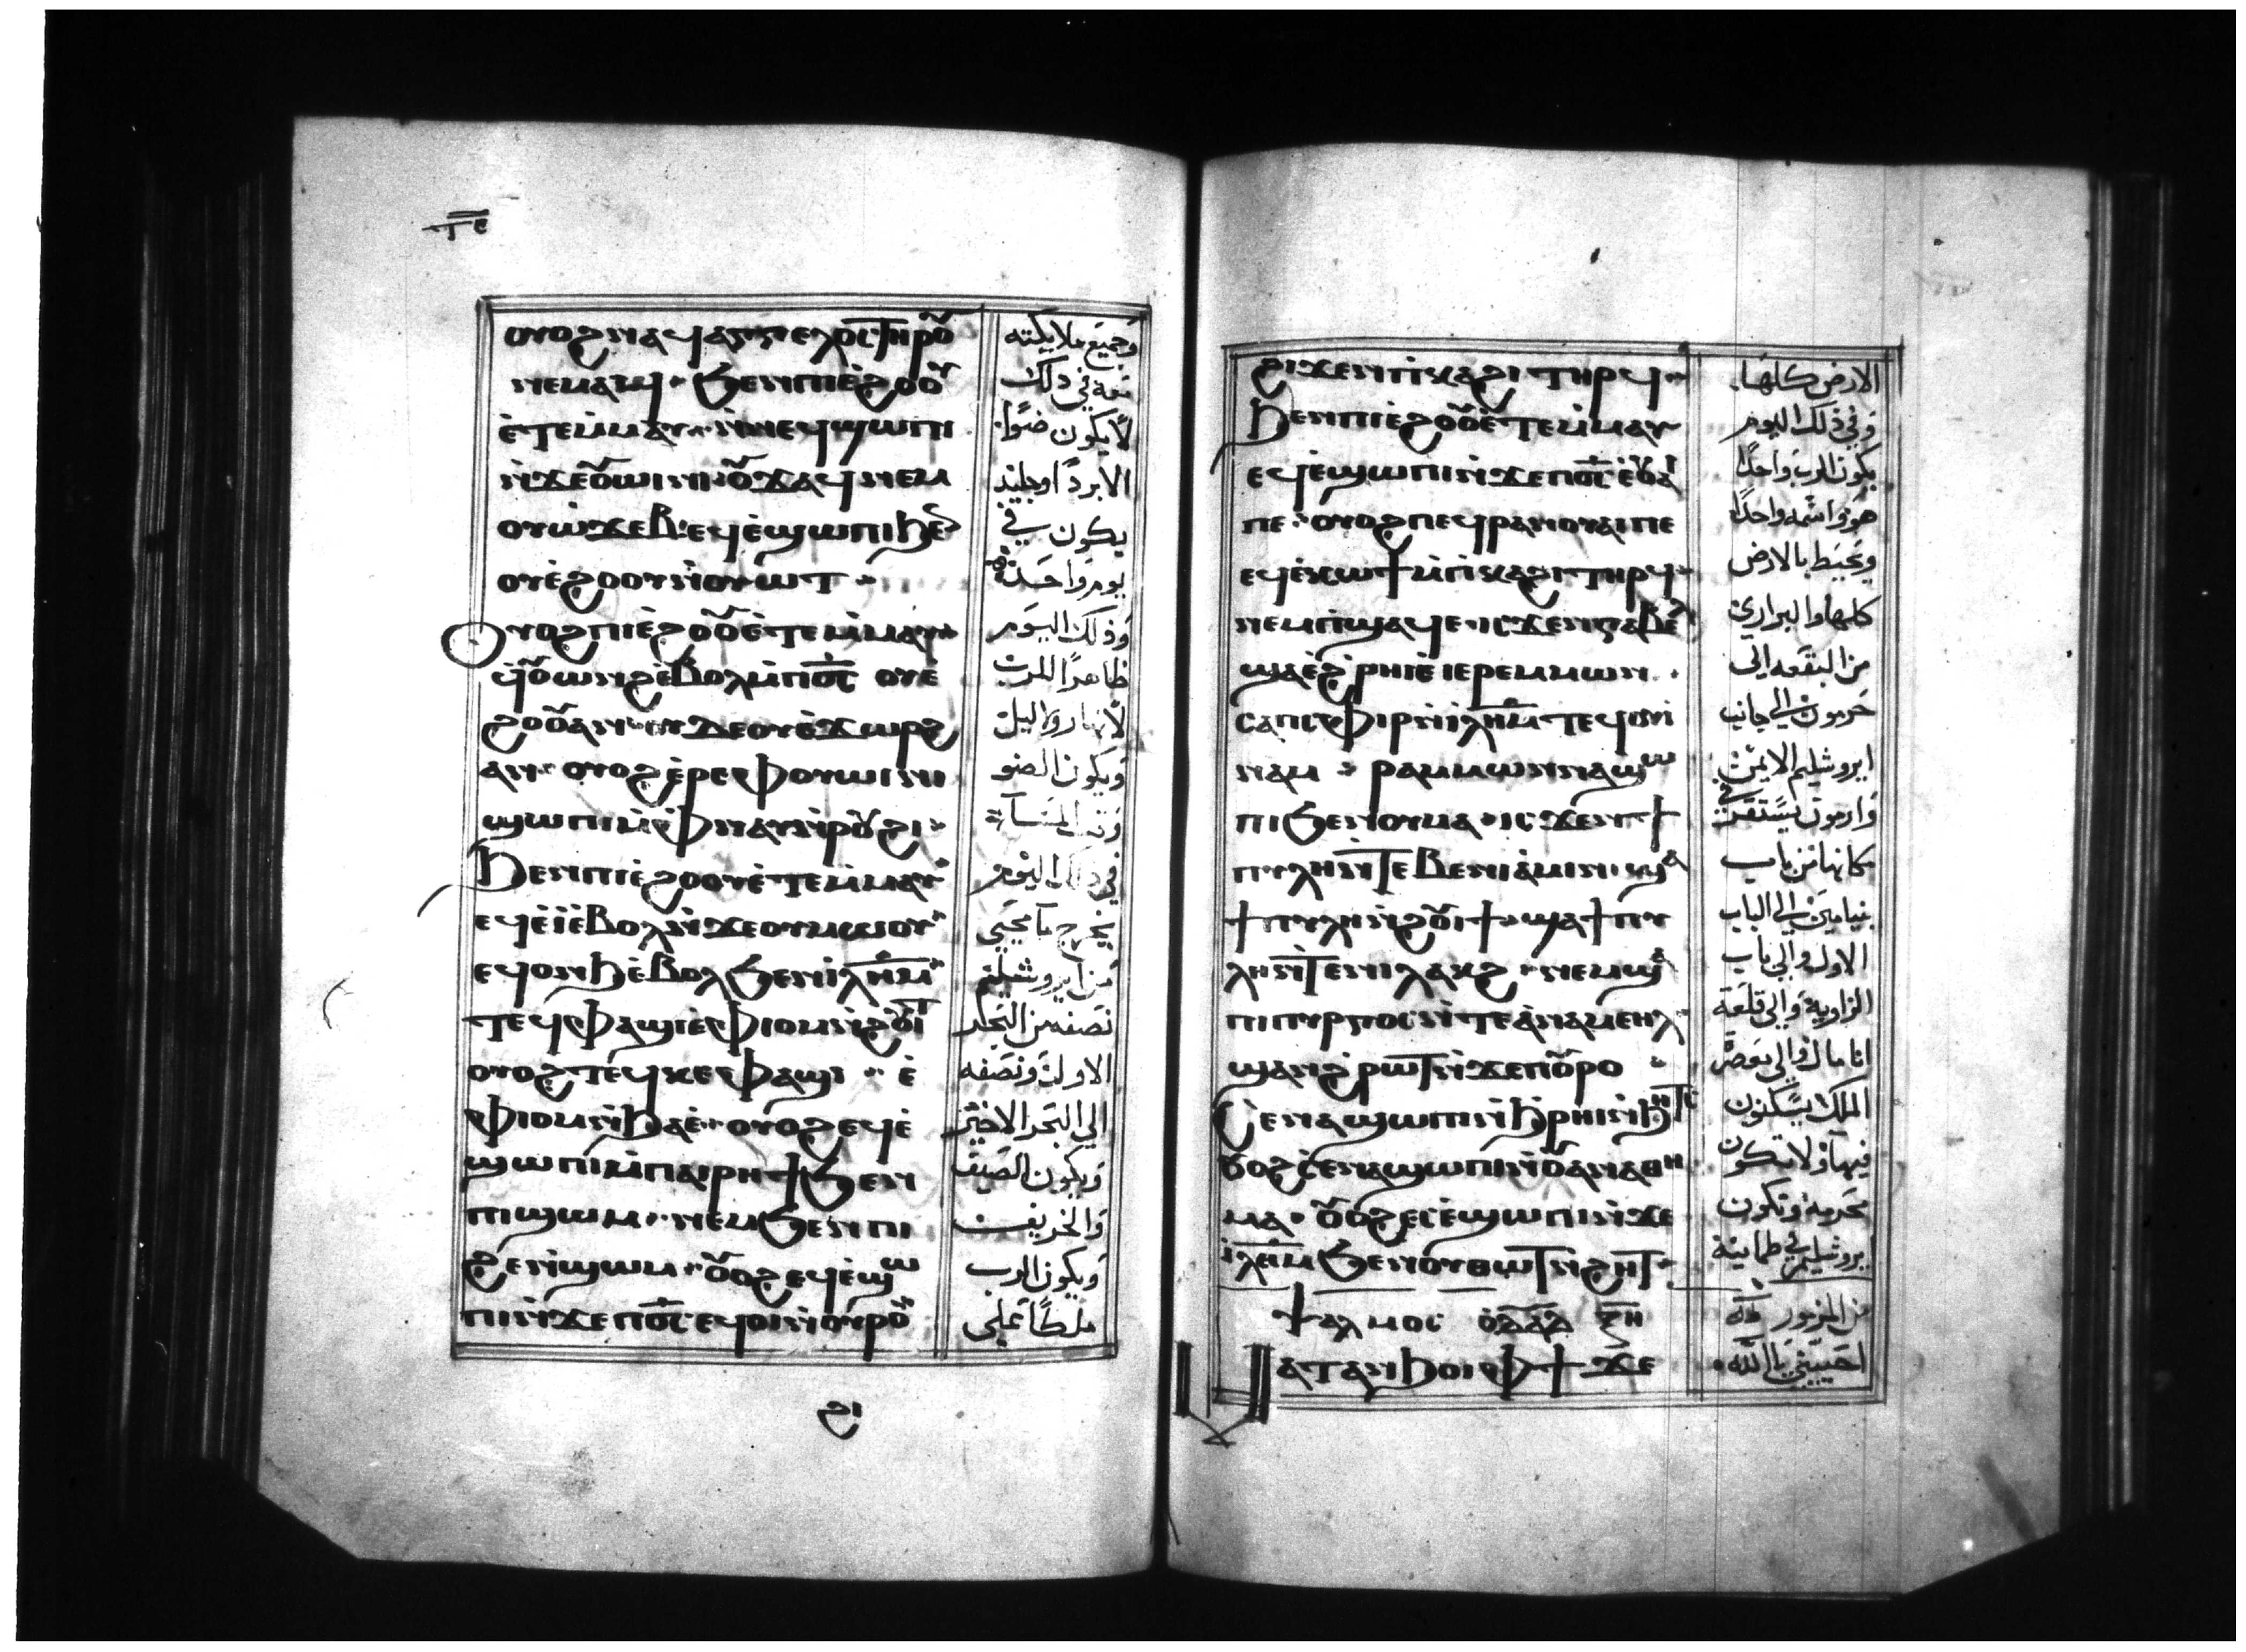 ⲧⲉ
ⲟⲩⲟϩ ⲛⲉϥⲁⲅⲅⲉⲗⲟⲥ ⲧⲏⲣⲟⲩ
ⲛⲉⲙⲁϥ ϧⲉⲛⲡⲓⲉ̀ϩⲟⲟⲩ
ⲉ̀ⲧⲉⲙ̀ⲙⲁⲩ ⲛ̀ⲛⲉϥϣⲱⲡⲓ
ⲛ̀ϫⲉⲟⲩⲱⲓⲛⲓ ⲟⲩϫⲁϥ ⲛⲉⲙ
ⲟⲩⲱ̀ϫⲉⲃ ⲉϥⲉ̀ϣⲱⲡⲓ ϧⲉⲛ
ⲟⲩⲉ̀ϩⲟⲟⲩ ⲛ̀ⲟⲩⲱⲧ
ⲟⲩⲟϩ ⲡⲓⲉ̀ϩⲟⲟⲩ ⲉ̀ⲧⲉⲙ̀ⲙⲁⲩ
ϥⲟⲩⲱⲛϩ ⲉ̀ⲃⲟⲗ ⲙ̀ⲡⲟ̅ⲥ̅ ⲟⲩⲉ̀
ϩⲟⲟⲩ ⲁⲛ ⲟⲩⲇⲉ ⲟⲩⲉ̀ϫⲱⲣϩ
ⲁⲛ ⲟⲩⲟϩ ⲉ̀ⲣⲉⲫⲟⲩⲱⲓⲛⲓ
ϣⲱⲡⲓ ⲙ̀ⲫⲛⲁⲩ ⲛ̀ⲣⲟⲩϩⲓ
ϧⲉⲛⲡⲓⲉ̀ϩⲟⲟⲩ ⲉ̀ⲧⲉⲙ̀ⲙⲁⲩ
ⲉϥⲉ̀ⲓ̀ ⲉ̀ⲃⲟⲗ ⲛ̀ϫⲉⲟⲩⲙⲱⲟⲩ
ⲉϥⲟⲛϧ ⲉ̀ⲃⲟⲗ ϧⲉⲛ ⲓ̅ⲗ̅ⲏ̅ⲙ̅
ⲧⲉϥⲫⲁϣⲓ ⲉ̀ⲫⲓⲟⲙ ⲛ̀ϩⲟⲩⲓⲧ
ⲟⲩⲟϩ ⲧⲉϥⲕⲉⲫⲁϣⲓ ⲉ̀
ⲫⲓⲟⲙ ⲛ̀ϧⲁⲉ̀ ⲟⲩⲟϩ ⲉϥⲉ̀
ϣⲱⲡⲓ ⲙ̀ⲡⲁⲓⲣⲏϯ ϧⲉⲛ
ⲡⲓϣⲱⲙ ⲛⲉⲙ ϧⲉⲛ ⲡⲓ
ϩⲉⲛϣⲱⲙ ⲟⲩⲟϩ ⲉϥⲉ̀ϣⲱ
ⲡⲓ ⲛ̀ϫⲉⲡⲟ̅ⲥ̅ ⲉϥⲟⲓ ⲛ̀ⲟⲩⲣⲟ
ϩⲓ
وجميع ملايكته
معه في ذلك
لا يكون ضوا
الا بردا وجليد
يكون في
يوم واحد
وذلك اليوم
ظاهرا للرب
لا نهار ولا ليل
ويكون الضو
وقت المساء
في ذلك اليوم
يخرج ما يحيي
من ايروشليم
نصفه من البحر
الاول ونصفه
الي البحر الاخير
ويكون الصيف
والخريف
ويكون الرب
ملكا علي
ϩⲓϫⲉⲛⲡⲓⲕⲁϩⲓ ⲧⲏⲣϥ
ϧⲉⲛⲡⲓⲉ̀ϩⲟⲟⲩ ⲉ̀ⲧⲉⲙ̀ⲙⲁⲩ
ⲉϥⲉ̀ϣⲱⲡⲓ ⲛ̀ϫⲉⲡⲟ̅ⲥ̅ ⲉ̀ⲟⲩⲁⲓ
ⲡⲉ ⲟⲩⲟϩ ⲡⲉϥⲣⲁⲛ ⲟⲩⲁⲓ ⲡⲉ
ⲉϥⲉ̀ⲕⲱϯ ⲙ̀ⲡⲓⲕⲁϩⲓ ⲧⲏⲣϥ
ⲛⲉⲙ ⲡⲓϣⲁϥⲉ ⲓⲥϫⲉⲛ ⲅⲁⲃⲉ
ϣⲁⲉ̀ϩⲣⲏⲓ ⲉ̀ⲓⲉⲣⲉⲙⲙⲱⲛ
ⲥⲁⲡⲓⲉⲫⲓⲣ ⲛ̀ⲓ̅ⲗ̅ⲏ̅ⲙ̅ ⲧⲉϥⲟⲩⲓ
ⲛⲁⲙ ⲣⲁⲙⲙⲱⲛ ⲛⲁϣⲱ
ⲡⲓ ϧⲉⲛⲟⲩⲙⲁ ⲓⲥϫⲉⲛ ϯ
ⲡⲩⲗⲏ ⲛ̀ⲧⲉ ⲃⲉⲛⲓⲁ̀ⲙⲓⲛ ϣⲁ
ϯⲡⲩⲗⲏ ⲛ̀ϩⲟⲩⲓϯ ϣⲁ ϯⲡⲩ
ⲗⲏ ⲛ̀ⲧⲉⲛⲓⲗⲁⲕϩ ⲛⲉⲙ ϣⲁ
ⲡⲓⲡⲩⲣⲅⲟⲥ ⲛ̀ⲧⲉ ⲁ̀ⲛⲁⲙⲉⲏⲗ
ϣⲁⲛϩⲣⲱⲧ ⲛ̀ϫⲉⲡⲟⲩⲣⲟ
ⲥⲉⲛⲁϣⲱⲡⲓ ⲛ̀ϧⲣⲏⲓ ⲛ̀ϧⲏⲧⲥ
ⲟⲩⲟϩ ⲥ̀ⲉⲛⲁϣⲱⲡⲓ ⲛ̀ⲟⲩⲁⲛⲁⲑⲏ
ⲙⲁ ⲟⲩⲟϩ ⲉⲥⲉ̀ϣⲱⲡⲓ ⲛ̀ϫⲉ
ⲓ̅ⲗ̅ⲏ̅ⲙ̅ ϧⲉⲛⲟⲩⲑⲱⲧ ⲛ̀ϩⲏⲧ
ⲯⲁⲗⲙⲟⲥ
ⲙⲁⲧⲁⲛϧⲟⲓ ⲫϯ ϫⲉ
الارض كلها
وفي ذلك اليوم
يكون الرب واحدا
هو واسمه واحدا
ويحيط بالارض
كلها والبراري
من البقعه الي
حرمون الي جانب
ايروشليم الايمن
وارمون يستقر في
مكانها من باب
بنيامين الي الباب
الاول والي باب
الزاوية والي قلعة
انامال والي معصرة
الملك يسكنون
فيها ولا تكون
محرمة وتكون
ايروشليم في طمانينة
من المزمور
احييني يا الله